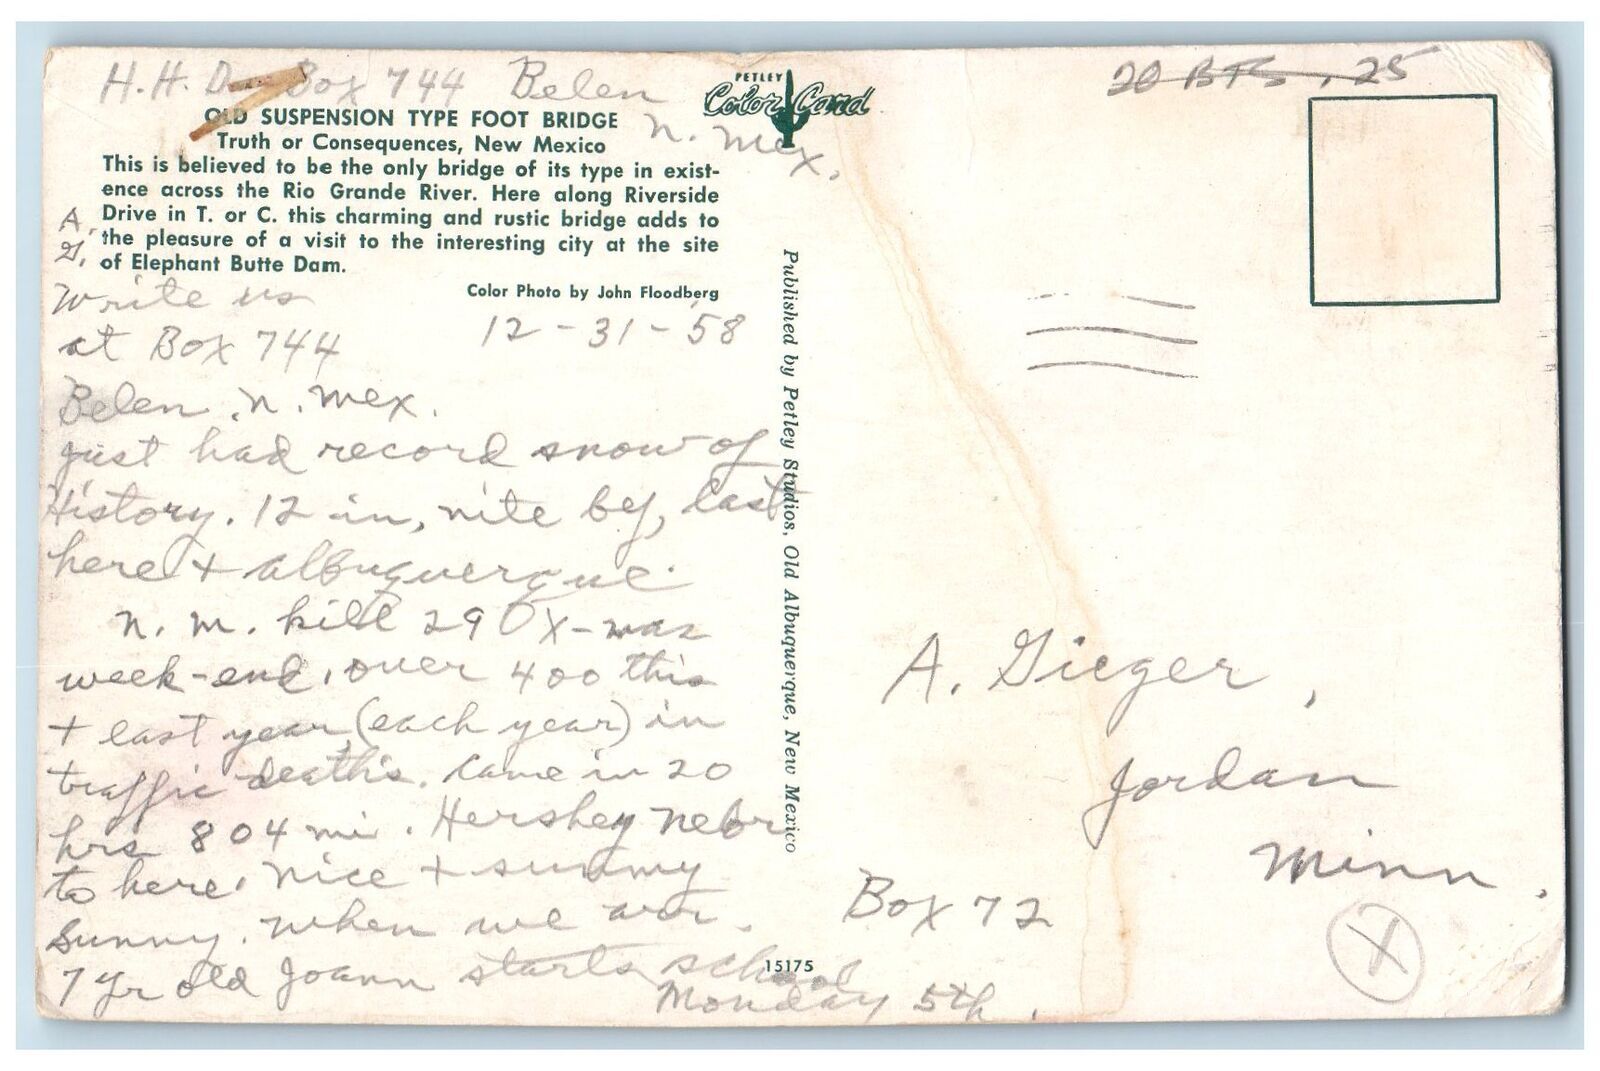 H. H. Box 744 Belen
N. Mex.
OLD SUSPENSION TYPE FOOT BRIDGE
Truth or Consequences, New Mexico
This is believed to be the only bridge of its type in exist-
ence across the Rio Grande River. Here along Riverside
Drive in T. or C. this charming and rustic bridge adds to
the pleasure of a visit to the interesting city at the site
of Elephant Butte Dam.
Color Photo by John Floodberg
A.
G.
12-31-58
Write us
at Box 744
Belen, N. Mex.
just had record snow of
History. 12 in, nite bef, last
here + albuquerque.
N. M. kill 29 X-mas
week-end. over 400 this
+ last year (each year) in
traffic deaths. Came in 20
hrs 804 mi. Hershey Nebr
to here. Nice + sunny
sunny. When we arr.
7 yr old Joann starts school
Monday 5th.
PETLEY
Color Card
Published by Petley Studios, Old Albuquerque, New Mexico
15175
20 BTS . 25
A. Gieger,
Jordan
Minn.
Box 72
X